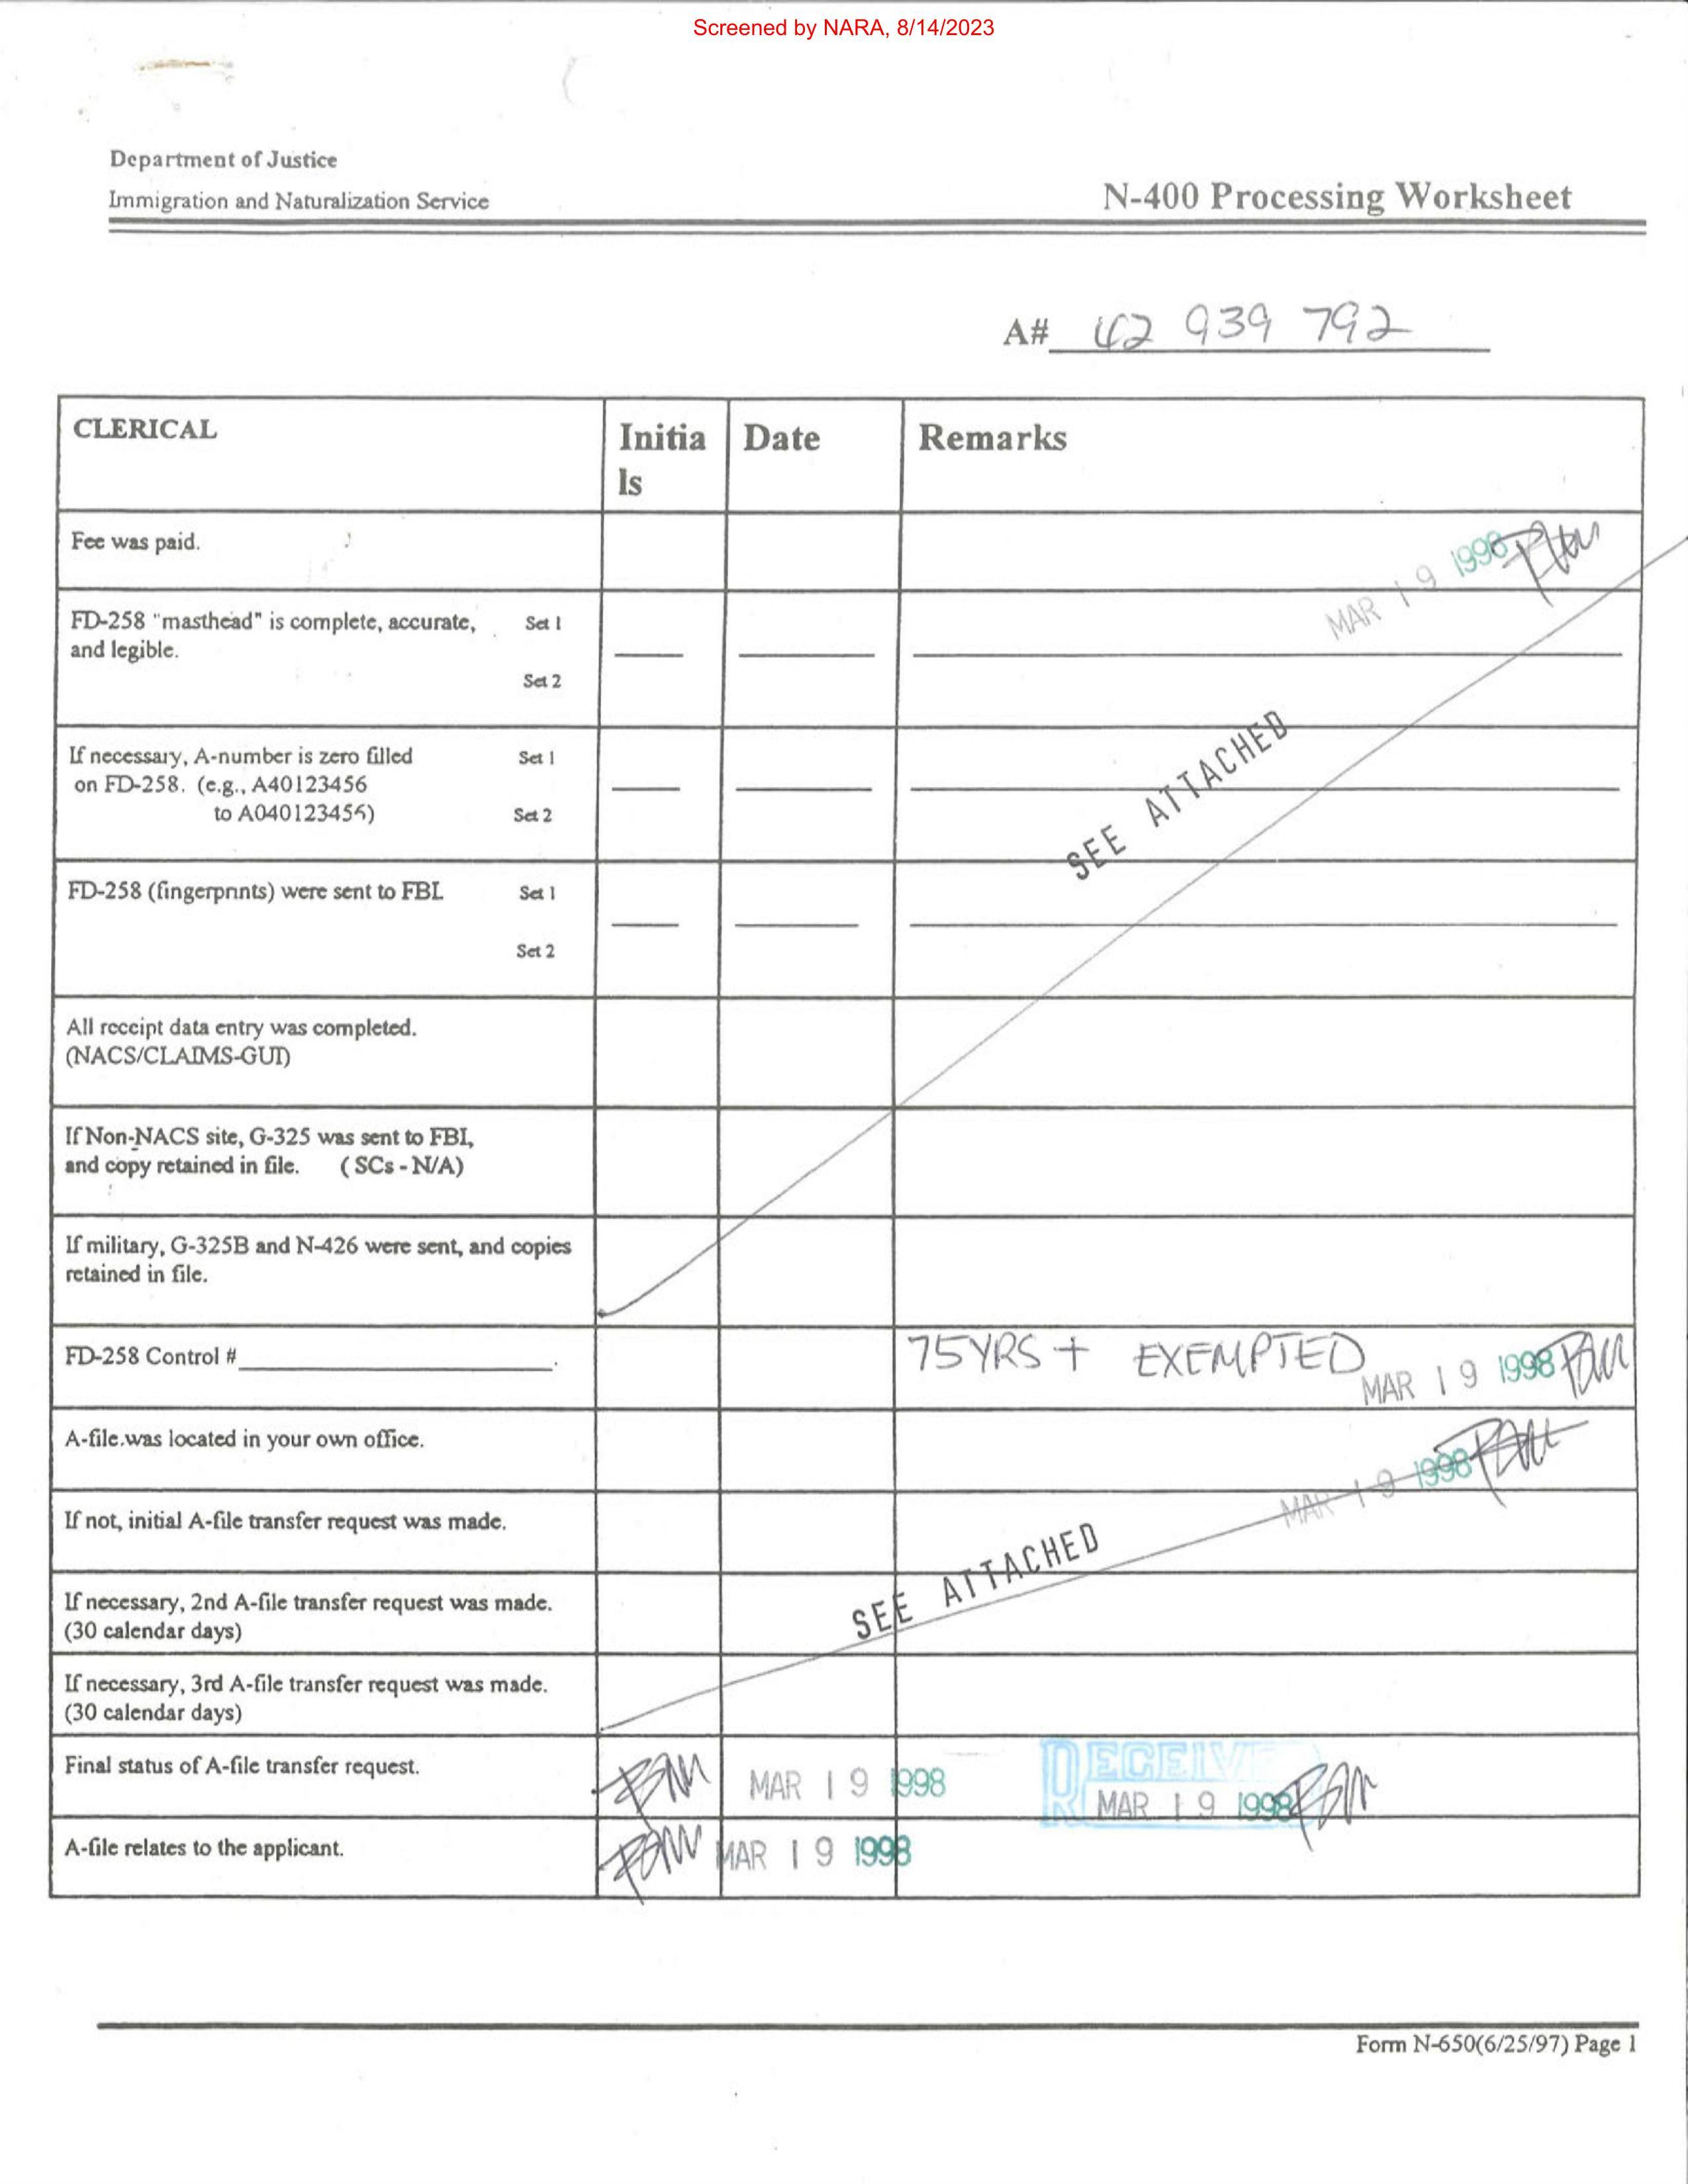 Screened by NARA, 8/14/2023
Department of Justice
Immigration and Naturalization Service
N-400 Processing Worksheet
A# 42 939 792
CLERICAL
Initia
ls
Date
Remarks
Fee was paid.
MAR 19 1998
FD-258 "masthead" is complete, accurate, Set 1
and legible.
Set 2
If necessary, A-number is zero filled Set 1
on FD-258. (e.g., A40123456
to A040123456) Set 2
SEE ATTACHED
FD-258 (fingerprints) were sent to FBI. Set 1
Set 2
All receipt data entry was completed.
(NACS/CLAIMS-GUI)
If Non-NACS site, G-325 was sent to FBI,
and copy retained in file. (SCs - N/A)
If military, G-325B and N-426 were sent, and copies
retained in file.
FD-258 Control #
75YRS + EXEMPTED
MAR 19 1998
A-file.was located in your own office.
MAR 19 1998
If not, initial A-file transfer request was made.
SEE ATTACHED
If necessary, 2nd A-file transfer request was made.
(30 calendar days)
If necessary, 3rd A-file transfer request was made.
(30 calendar days)
Final status of A-file transfer request.
MAR 19 1998
RECEIVE
MAR 19 1998
A-file relates to the applicant.
MAR 19 1998
Form N-650(6/25/97) Page 1